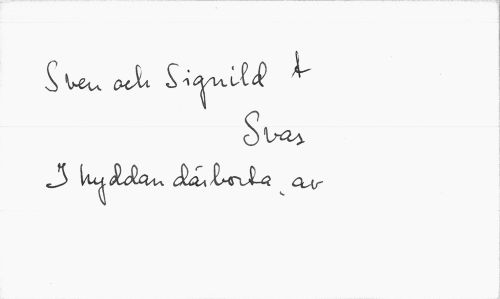 Sven och Signild t
Svas
I hyddan därborta, av